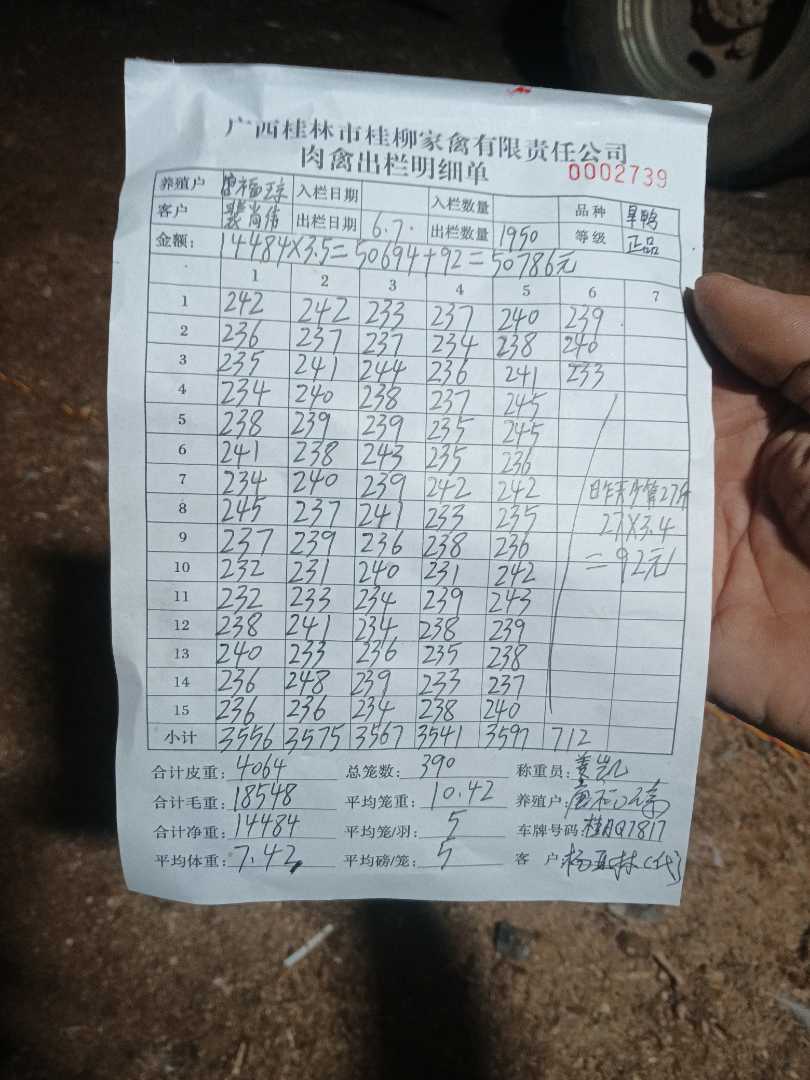 广西桂林市桂柳家禽有限责任公司
肉禽出栏明细单 0002739
养殖户 入栏日期 入栏数量 品种 旱鸭
客户 裴尚倩 出栏日期 6.7. 出栏数量 1950 等级 正品
金额: 14484×3.5=50694+92=50786元
1 2 3 4 5 6 7
1 242 242 233 237 240 239
2 236 237 237 234 238 240
3 235 241 244 236 241 233
4 234 240 238 237 245
5 238 239 239 235 245
6 241 238 243 235 236
7 234 240 239 242 242 27斤
8 245 237 241 233 235 27×3.4
9 237 239 236 238 236 =92元
10 232 231 240 231 242
11 232 233 234 239 243
12 238 241 234 238 239
13 240 233 236 235 238
14 236 248 239 233 237
15 236 236 234 238 240
小计 3556 3575 3567 3541 3597 712
合计皮重: 4064 总笼数: 390 称重员: 姜凯
合计毛重: 18548 平均笼重: 10.42 养殖户:
合计净重: 14484 平均笼/羽: 5 车牌号码: 桂AQ7817
平均体重: 7.42 平均磅/笼: 5 客户 杨亚林(代)